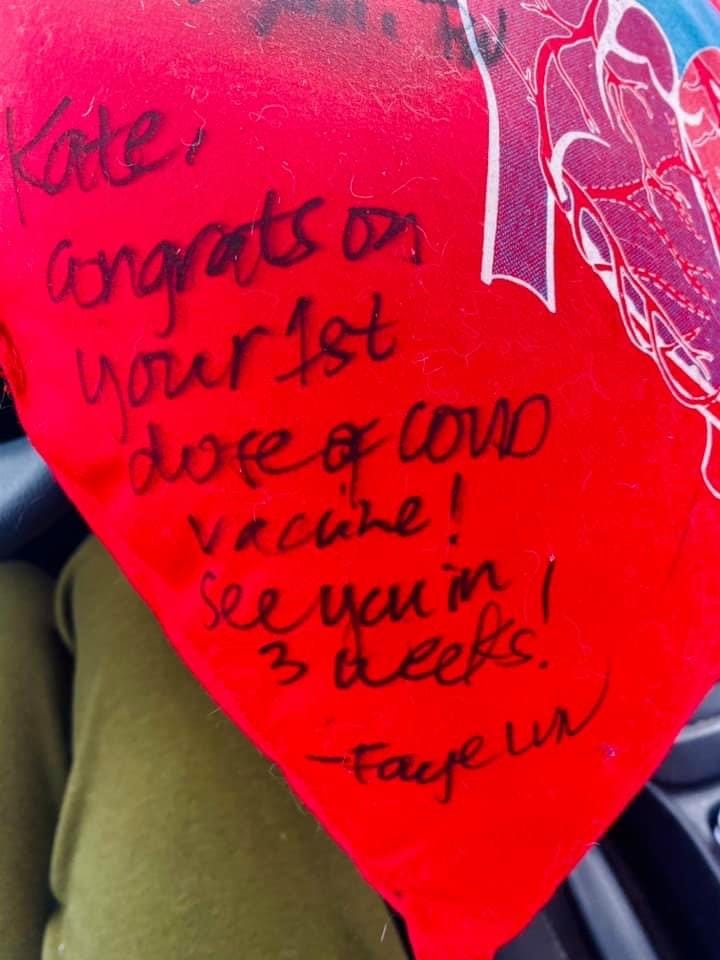 Kate,
Congrats on
your 1st
dose of COVID
vaccine!
See you in
3 weeks!
-Faye LVN